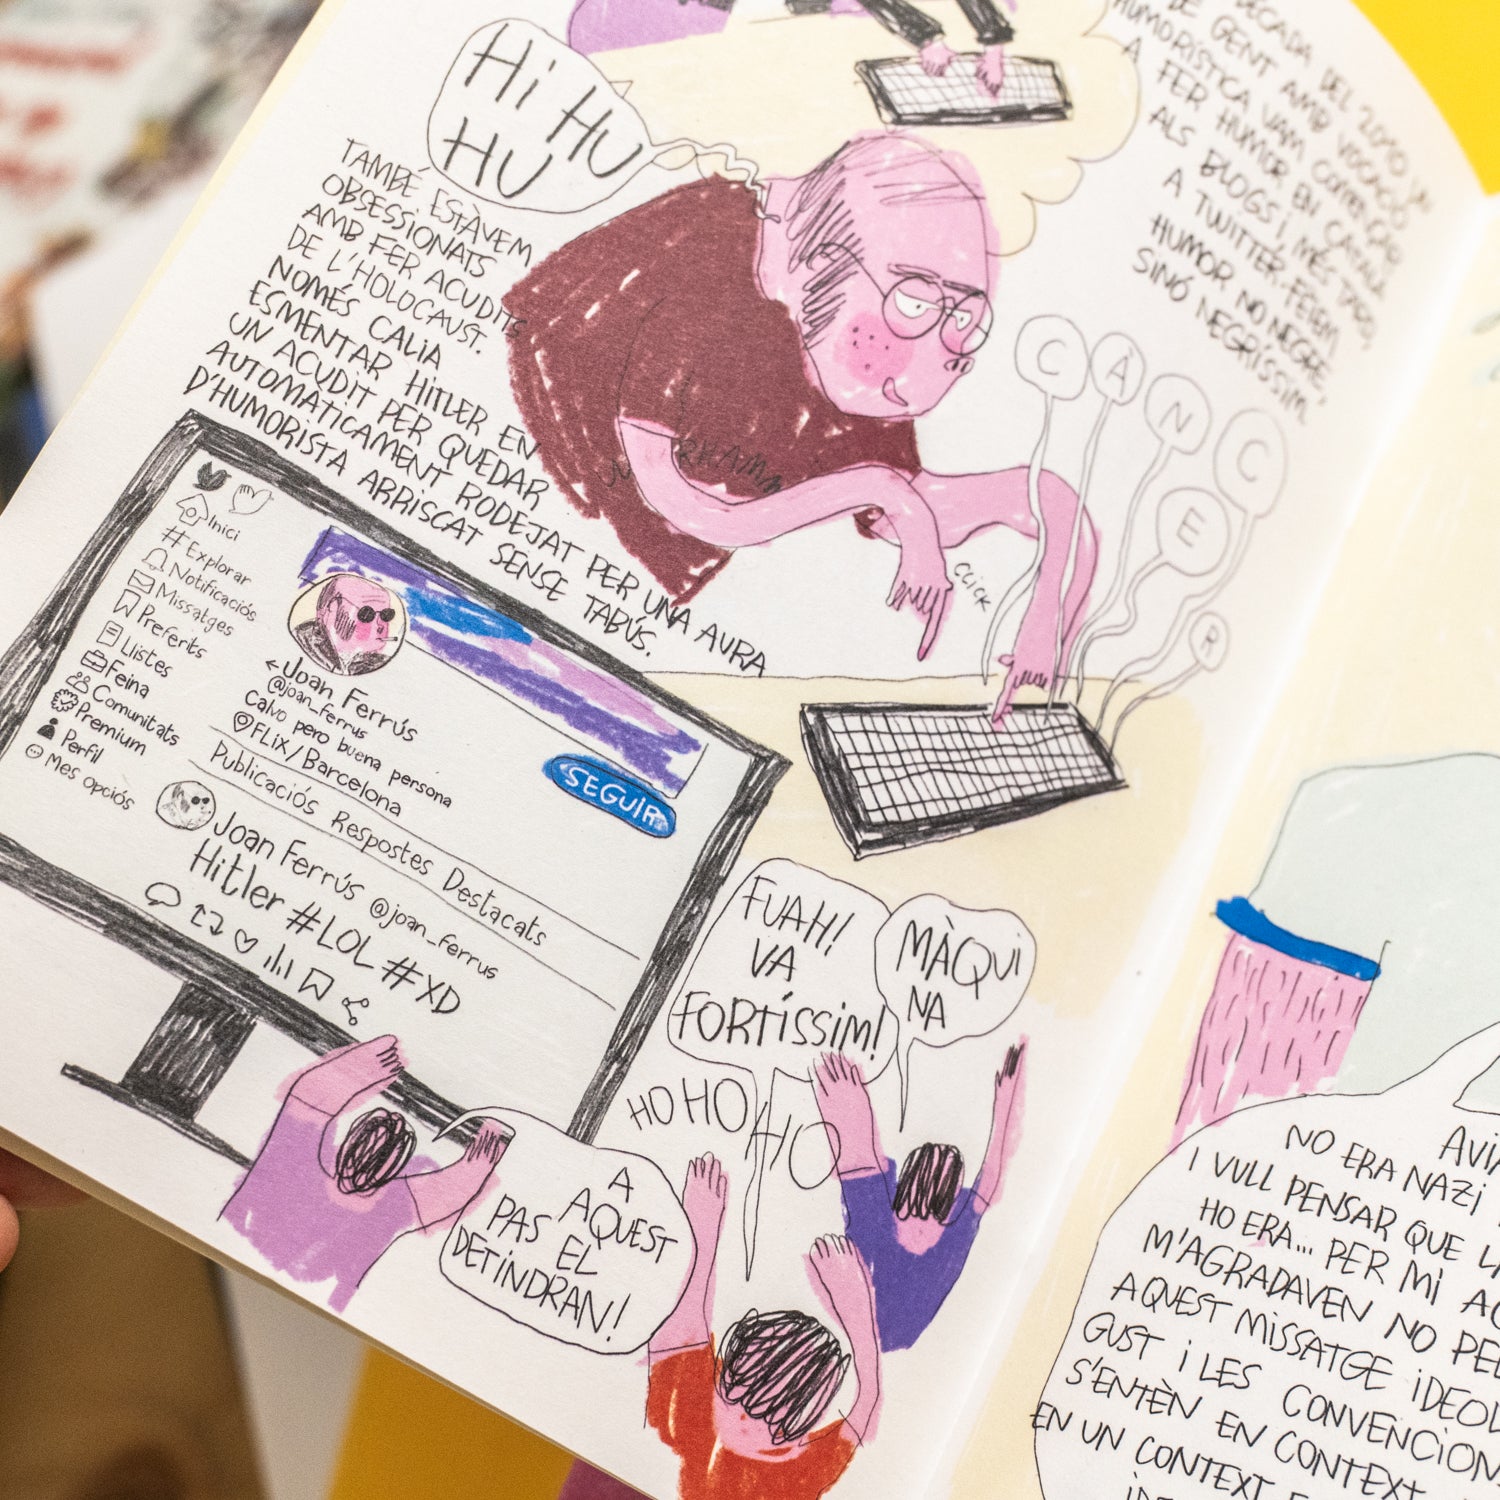 DÈCADA DEL 2010
DE GENT AMB VOCACIÓ
HUMORÍSTICA VAM COMENÇAR
A FER HUMOR EN CATALÀ
ALS BLOGS I, MÉS TARD,
A TWITTER. FÈIEM
HUMOR NO NEGRE,
SINÓ NEGRÍSSIM.
Hi HU
HU
TAMBÉ ESTÀVEM
OBSESSIONATS
AMB FER ACUDITS
DE L'HOLOCAUST.
NOMÉS CALIA
ESMENTAR HITLER EN
UN ACUDIT PER QUEDAR
AUTOMÀTICAMENT RODEJAT PER UNA AURA
D'HUMORISTA ARRISCAT SENSE TABÚS.
C À N C E R
CLICK
Inici
#Explorar
Notificaciós
Missatges
Preferits
Llistes
Feina
Comunitats
Premium
Perfil
Mes opciós
←Joan Ferrús
@joan_ferrus
Calvo pero buena persona
FLix/Barcelona
SEGUIR
Publicaciós Respostes Destacats
Joan Ferrús @joan_ferrus
Hitler #LOL #XD
FUAH!
VA
FORTÍSSIM!
MÀQUI
NA
HO HO HO
A
AQUEST
PAS EL
DETINDRAN!
NO ERA NAZI
I VULL PENSAR QUE
HO ERA... PER MI
M'AGRADAVEN NO PEL
AQUEST MISSATGE IDEOL
GUST I LES CONVENCION
S'ENTÈN EN CONTEXT
EN UN CONTEXT